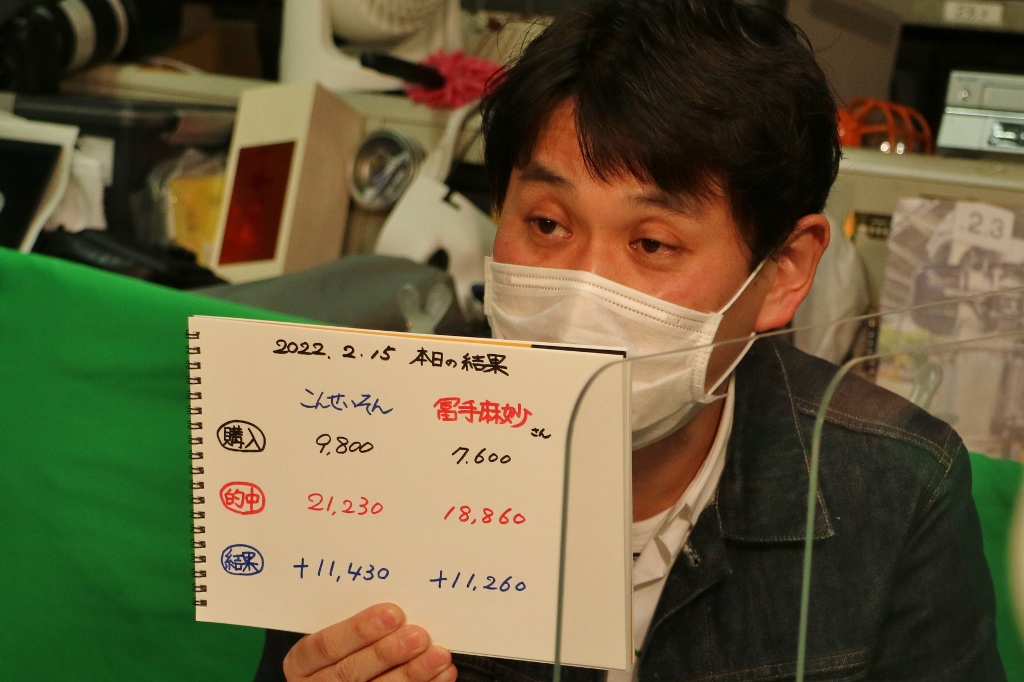 2022.2.15 本日の結果
こんせいそん 冨手麻妙さん
購入 9,800 7.600
的中 21,230 18,860
結果 +11,430 +11,260
23